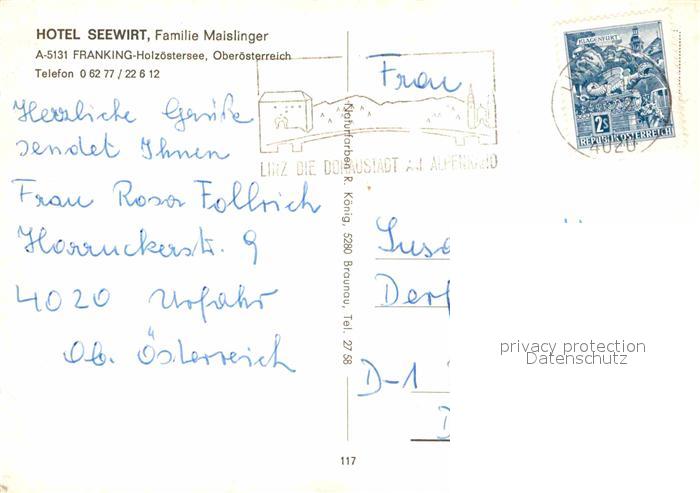 HOTEL SEEWIRT, Familie Maislinger
A-5131 FRANKING-Holzöstersee, Oberösterreich
Telefon 0 62 77 / 22 6 12
Herzliche Grüße
sendet Ihnen
Frau Rosa Follrich
Harruckerstr. 9
4020 Urfahr
Ob. Österreich
117
Naturfarben R. König, 5280 Braunau, Tel. 27 58
LINZ DIE DONAUSTADT AM ALPENRAND
KLAGENFURT
2S
REPUBLIK ÖSTERREICH
4020
Frau
D-1
privacy protection
Datenschutz